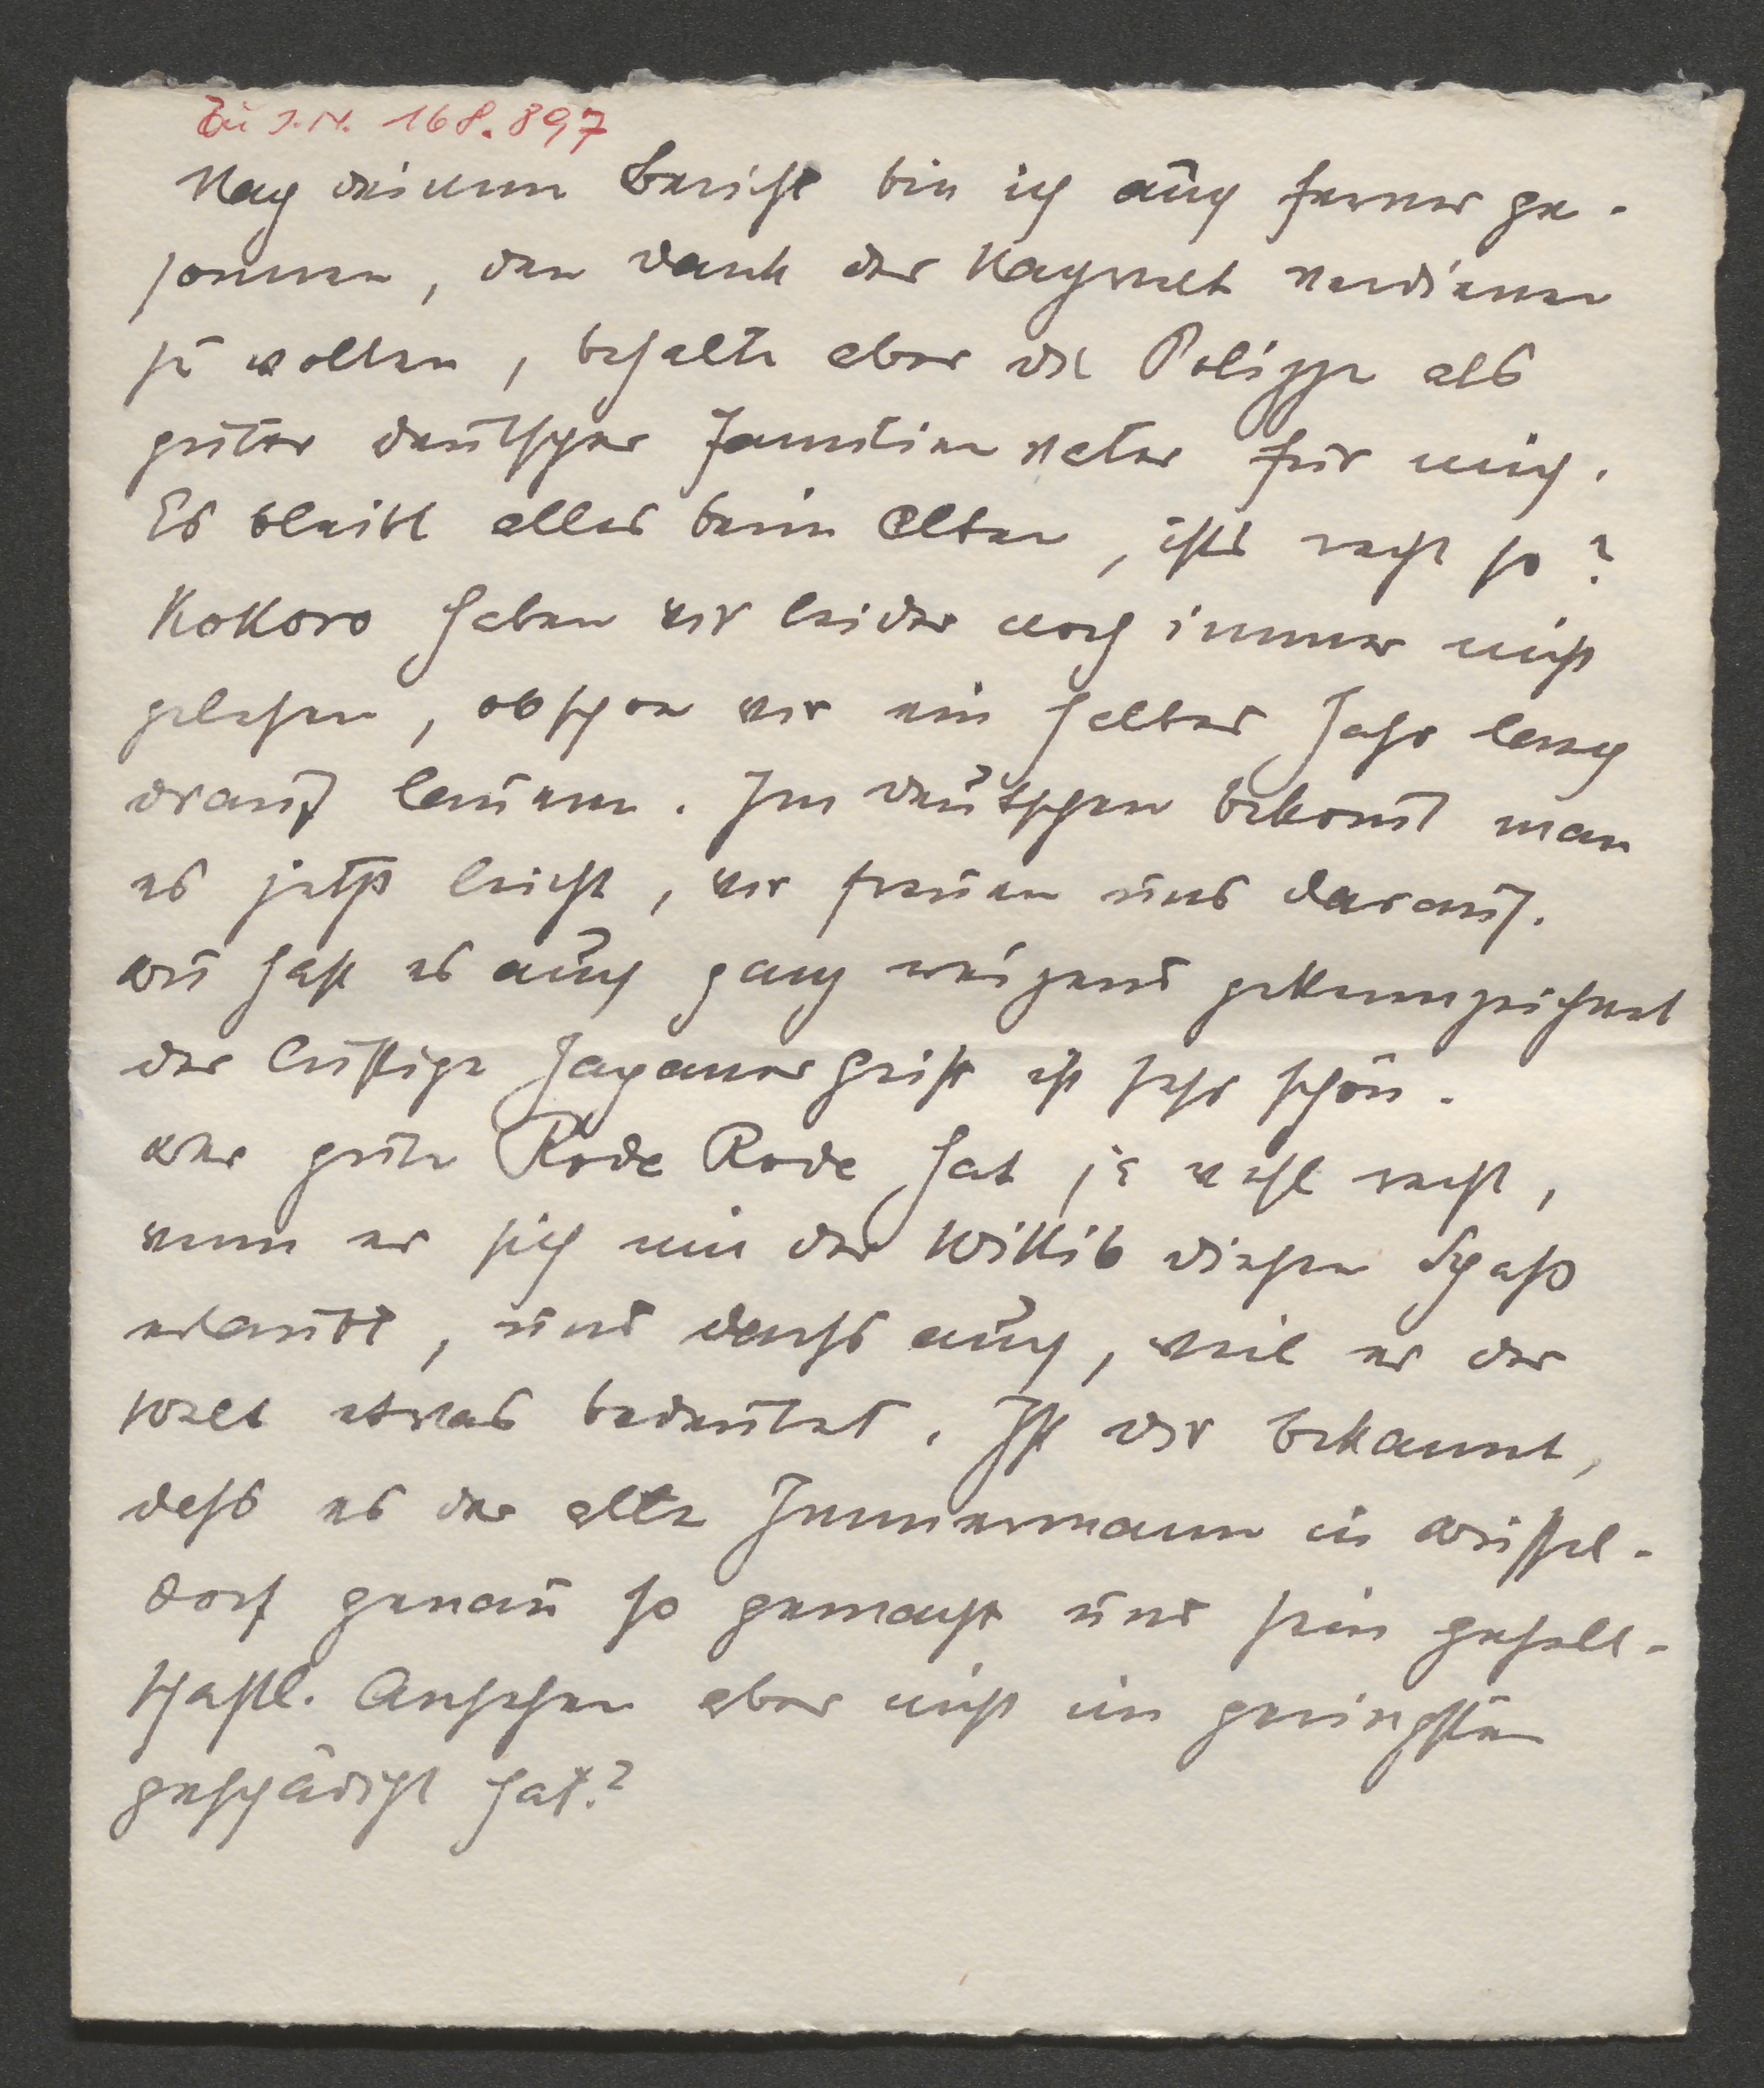 Zu I.N. 168.897
Nach deinem Bericht bin ich auch ferner ge-
sonnen, den Dank der Nachwelt verdienen
zu wollen, behalte aber die Polizze als
guter deutscher Familienvater für mich.
Es bleibt alles beim Alten, ists recht so?
Kokoro haben wir leider noch immer nicht
gelesen, obschon wir ein halbes Jahr lang
drauf lauern. Im Deutschen bekomt man
es jetzt leicht, wir freuen uns darauf.
Du hast es auch ganz reizend gekennzeichnet
der lustige Japanergeist ist sehr schön.
Der gute Roda Roda hat ja wohl recht,
wenn er sich mit der Kritik diesen Spass
erlaubt, und darfs auch, weil er der
Welt etwas bedeutet. Ist dir bekannt,
dass es der alte Immermann in Düssel-
dorf genau so gemacht und sein gesell-
schaftl. Ansehen aber nicht im geringsten
geschädigt hat?